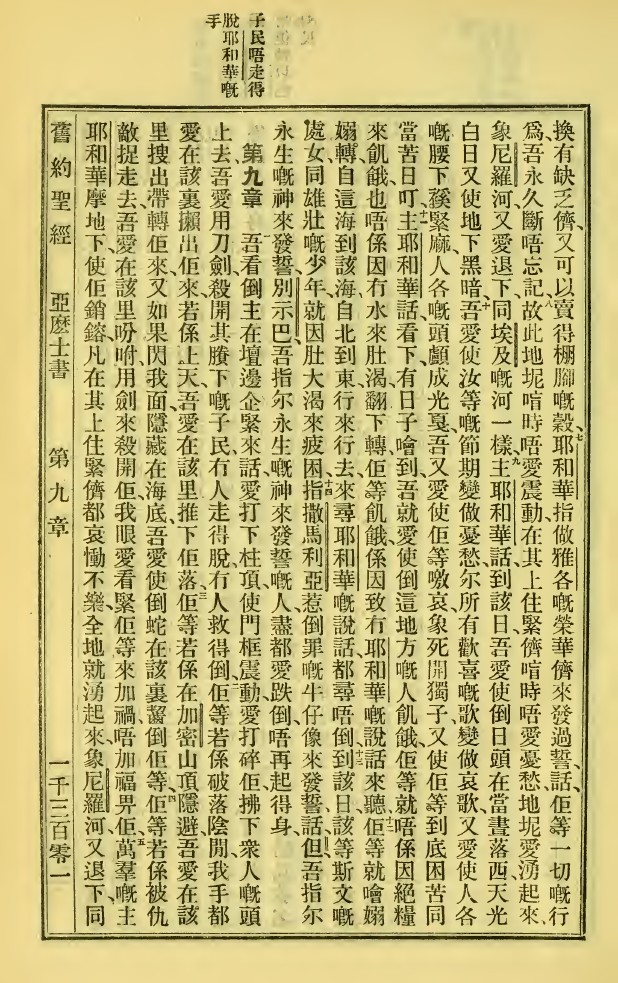 子民唔走得
脫耶和華嘅
手
換有缺乏儕、又可以賣得棚腳嘅穀、七耶和華指做雅各嘅榮華儕來發過誓、話、佢等一切嘅行
為、吾永久斷唔忘記、八故此地坭喧時唔愛震動、在其上住緊儕、喧時唔愛憂愁、地坭愛湧起來、
象尼羅河、又愛退下、同埃及嘅河一樣、九主耶和華話、到該日、吾愛使倒日頭在當晝落西、天光
白日、又使地下黑暗、十吾愛使汝等嘅節期變做憂愁、尔所有歡喜嘅歌、變做哀歌、又愛使人各
嘅腰下、緊麻、人各嘅頭顱成光戛、吾又愛使佢等噭哀、象死開獨子、又使佢等到底困苦、同
當苦日、叮十一主耶和華話、看下、有日子噲到、吾就愛使倒這地方嘅人飢餓、佢等就唔係因絕糧
來飢餓、也唔係因冇水來肚渴、翻下轉、佢等飢餓、係因致冇耶和華嘅說話來聽、十二佢等就噲嫋
嫋轉、自這海到該海、自北到東、行來行去、來尋耶和華嘅說話、都尋唔倒、十三到該日、該等斯文嘅
處女、同雄壯嘅少年、就因肚大渴來疲困、十四指撒馬利亞惹倒罪嘅牛仔像來發誓、話、但、吾指尔
永生嘅神來發誓、別示巴、吾指尔永生嘅神來發誓嘅人、盡都愛跌倒、唔再起得身、
第九章 吾看倒主在壇邊企緊、來話、愛打下柱頂、使門框震動、愛打碎佢、拂下衆人嘅頭
上去、吾愛用刀劍殺開其賸下嘅子民、冇人走得脫、冇人救得倒、二佢等若係破落陰間、我手都
愛在該裏攋出佢來、若係上天、吾愛在該里推下佢落、三佢等若係在加密山頂隱避、吾愛在該
里搜出、帶轉佢來、又如果閃我面、隱藏在海底、吾愛使倒蛇在該裏齧倒佢等、四佢等若係被仇
敵捉走去、吾愛在該里吩咐用劍來殺開佢、我眼愛看緊佢等來加禍、唔加福畀佢、五萬羣嘅主
耶和華摩地下、使佢銷鎔、凡在其上住緊儕、都哀慟不樂、全地就湧起來、象尼羅河、又退下、同
舊約聖經 亞麽士書 第九章 一千三百零一